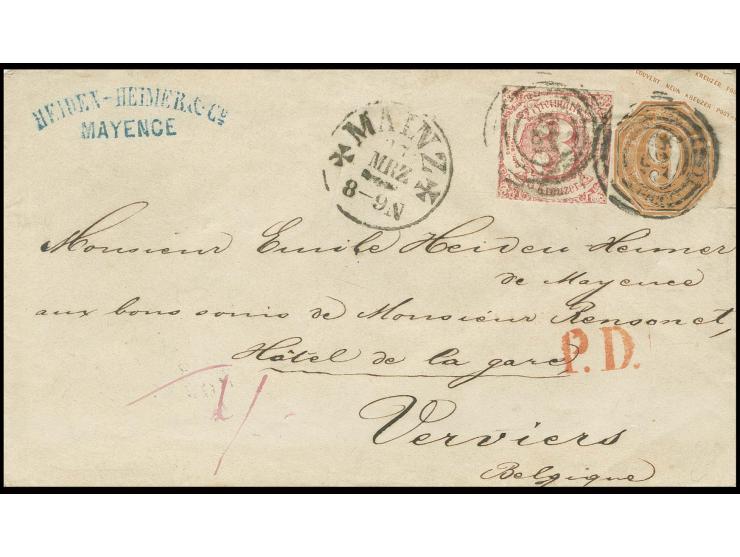 COUVERT NEUN KREUZER POST
HEIDEN-HEIMER & Co
MAYENCE
MAINZ
MRZ
8-9N
3
Kreuzer
9
Monsieur Emile Heiden Heimer
de Mayence
aux bons soins de Monsieur Rensonet,
Hôtel de la gare
P.D.
1/
Verviers
Belgique